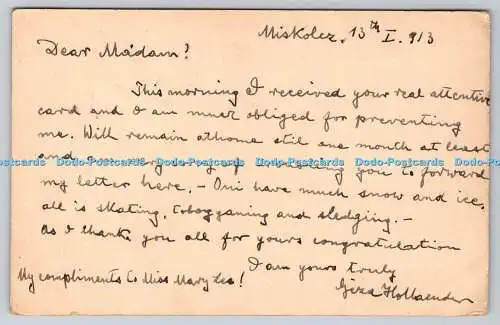 Miskolcz, 13th I. 913
Dear Madam!
This morning I received your real attentive
card and I am much obliged for preventing
me. Will remain athome still one month at least
and you to forward
my letter here. – Oui have much snow and ice,
all is skating, tobogganing and sledging. –
As I thank you all for yours congratulation
I am yours truly
My compliments to Miss Mary Lea! Géza Hollaender
Dodo-Postcards Dodo-Postcards Dodo-Postcards Dodo-Postcards Dodo-Postcards